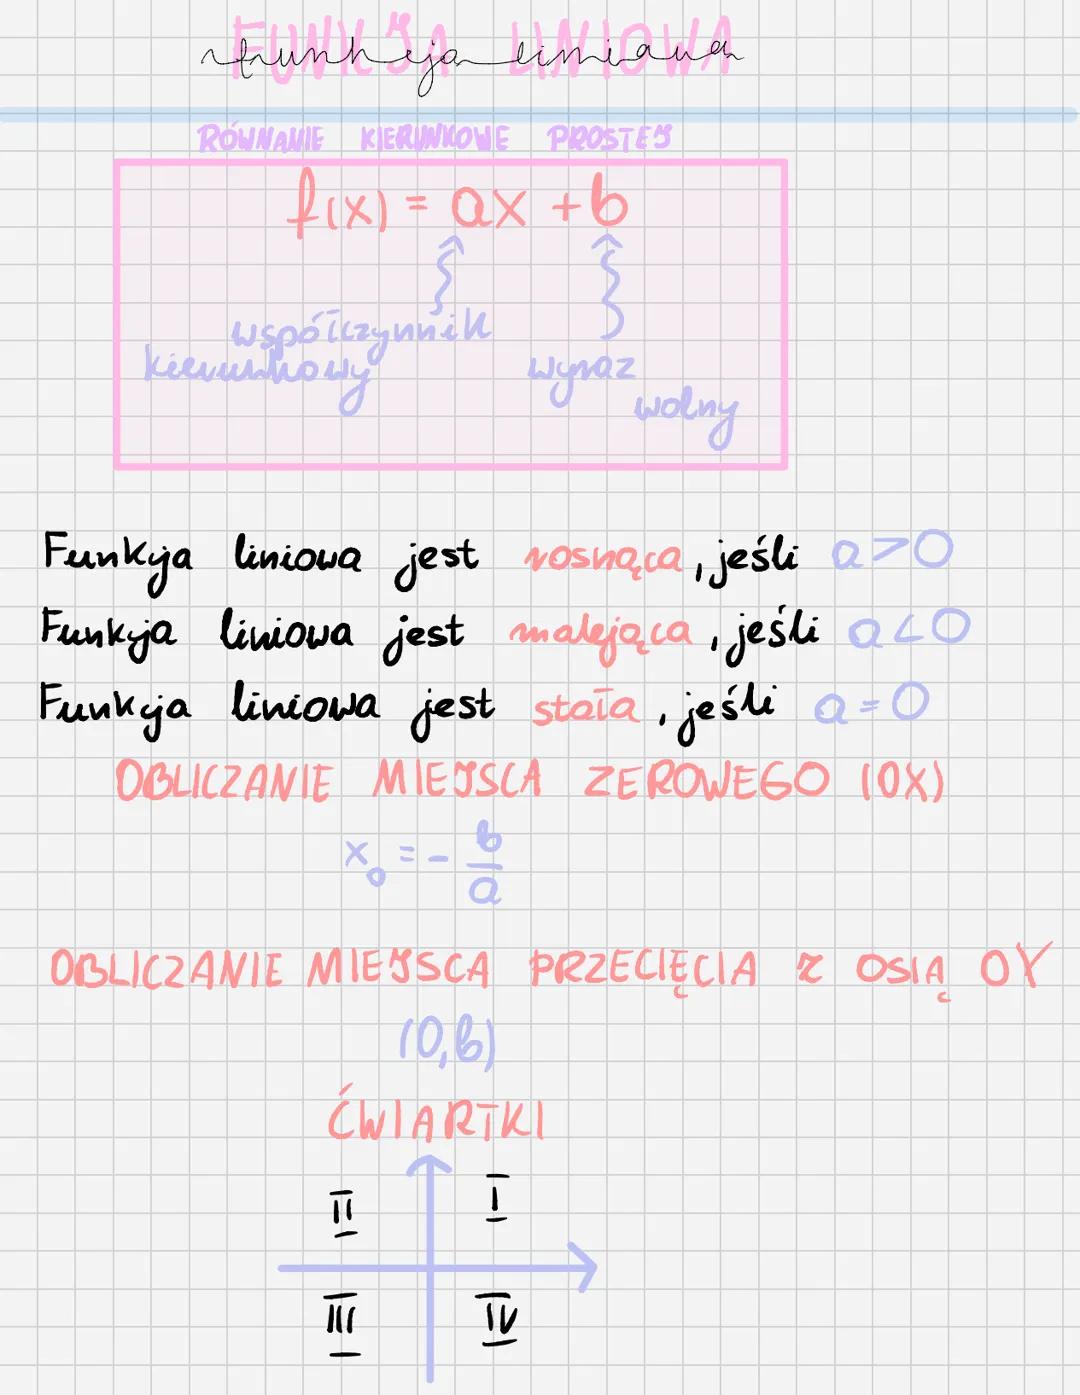 FUNKCJA LINIOWA
funkcja liniowa
RÓWNANIE KIERUNKOWE PROSTEJ
f(x) = ax + b
współczynnik
kierunkowy
wyraz
wolny
Funkcja liniowa jest rosnąca, jeśli a>0
Funkcja liniowa jest malejąca, jeśli a<0
Funkcja liniowa jest stała, jeśli a=0
OBLICZANIE MIEJSCA ZEROWEGO (OX)
x₀ = - b/a
OBLICZANIE MIEJSCA PRZECIĘCIA Z OSIĄ OY
(0,b)
ĆWIARTKI
II I
III IV